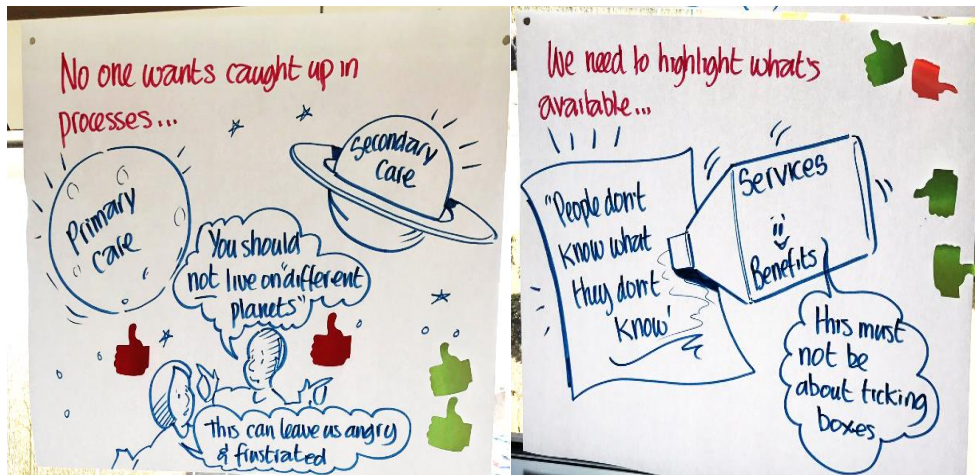 No one wants caught up in
processes...
Primary
care
Secondary
Care
You should
not live on "different
planets"
This can leave us angry
& frustrated
We need to highlight what's
available...
"People don't
know what
they don't
know'
Services
Benefits
this must
not be
about ticking
boxes